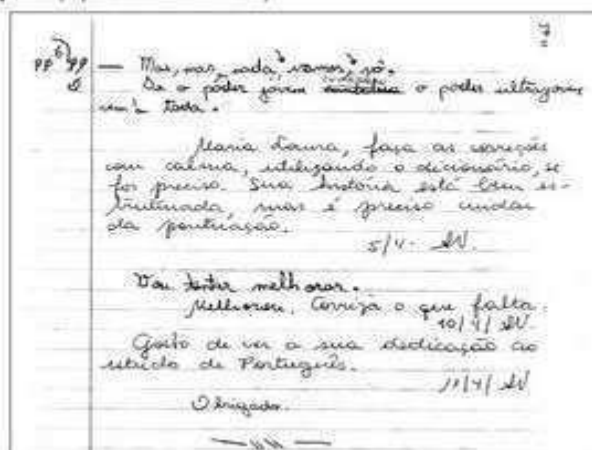 — Mas, mas, nada, vamos, só.
Se o poder jovem o poder ultrajovem
tada.
Maria Laura, faça as correções
com calma, utilizando o dicionário, se
for preciso. Sua história está bem es-
truturada, mas é preciso cuidar
da pontuação.
5/4 - SV.
Vou tentar melhorar.
Melhorou. Corrija o que falta.
10/4/ SV.
Gosto de ver a sua dedicação ao
estudo de Português.
11/4/ SV
Obrigada.